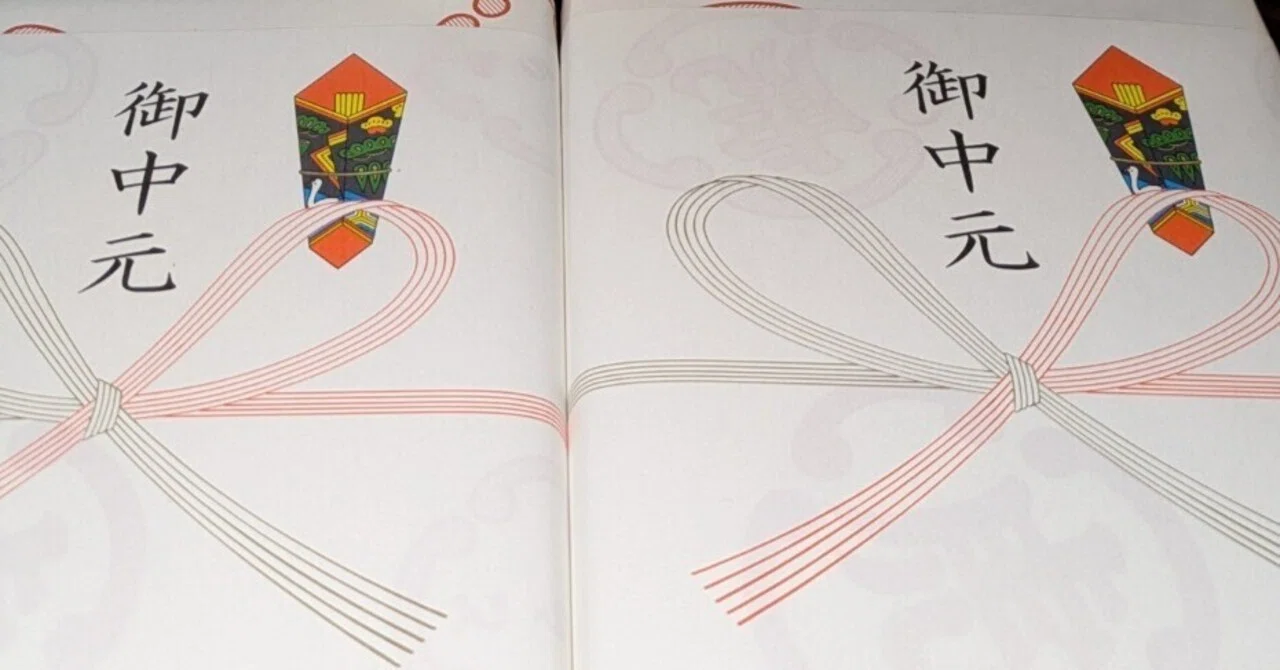 御中元
御中元